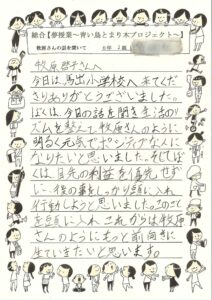 総合【夢授業～青い鳥とまり木プロジェクト～】
牧原さんの話を聞いて 6年 2組
牧原哲子さんへ
今日は馬出小学校へ来てくだ
さりありがとうございました。
ぼくは、今日の話を聞き生活のリ
ズムを整えて牧原さんのように
明るく元気でポジティブな人に
なりたいと思いました。そしてぼ
くは、目先の利益を優先せず
に、後の事をしっかり頭に入れ
行動しようと思いました。このこと
を頭に入れ、これからは牧原
さんのようにもっと前向きに
生ていきたいと思います。